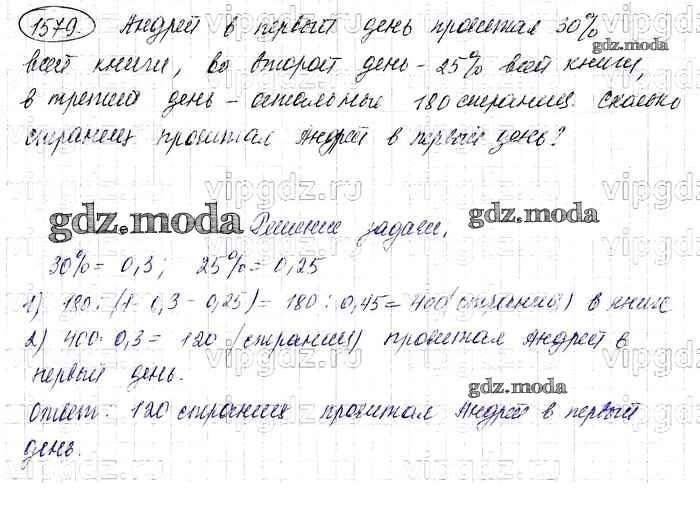 1579. Андрей в первый день прочитал 30%
всей книги, во второй день - 25% всей книги,
в третий день - остальные 180 страниц. Сколько
страниц прочитал Андрей в первый день?
Решение задачи.
30% = 0,3; 25% = 0,25
1) 180 : (1 - 0,3 - 0,25) = 180 : 0,45 = 400 (страниц) в книге
2) 400 · 0,3 = 120 (страниц) прочитал Андрей в
первый день.
Ответ: 120 страниц прочитал Андрей в первый
день.
gdz.moda
gdz.moda
gdz.moda
gdz.moda
vipgdz.ru